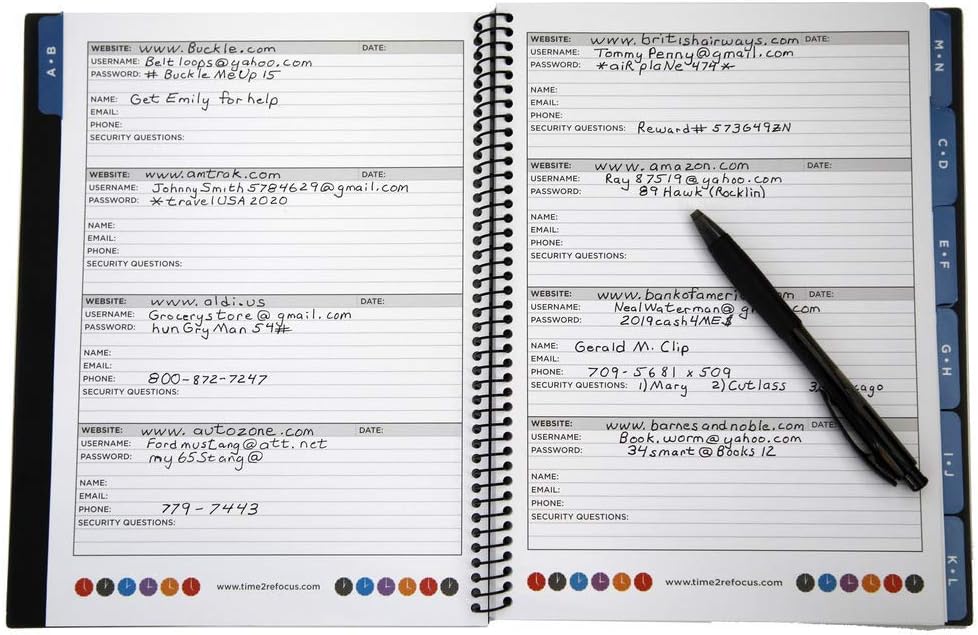 A • B
WEBSITE: www.Buckle.com DATE:
USERNAME: Beltloops@yahoo.com
PASSWORD: # BuckleMeUp15
NAME: Get Emily for help
EMAIL:
PHONE:
SECURITY QUESTIONS:
WEBSITE: www.amtrak.com DATE:
USERNAME: JohnnySmith5784629@gmail.com
PASSWORD: *travelUSA2020
NAME:
EMAIL:
PHONE:
SECURITY QUESTIONS:
WEBSITE: www.aldi.us DATE:
USERNAME: Grocerystore@gmail.com
PASSWORD: hunGryMan54#
NAME:
EMAIL:
PHONE: 800-872-7247
SECURITY QUESTIONS:
WEBSITE: www.autozone.com DATE:
USERNAME: Fordmustang@att.net
PASSWORD: my65Stang@
NAME:
EMAIL:
PHONE: 779-7443
SECURITY QUESTIONS:
www.time2refocus.com
WEBSITE: www.britishairways.com DATE:
USERNAME: TommyPenny@gmail.com
PASSWORD: *aiRplaNe474*
NAME:
EMAIL:
PHONE:
SECURITY QUESTIONS: Reward# 573649ZN
WEBSITE: www.amazon.com DATE:
USERNAME: Ray87519@yahoo.com
PASSWORD: 89 Hawk (Rocklin)
NAME:
EMAIL:
PHONE:
SECURITY QUESTIONS:
WEBSITE: DATE:
USERNAME:
PASSWORD: 2019cash4ME$
NAME: Gerald M. Clip
EMAIL:
PHONE: 709-5681 x 509
SECURITY QUESTIONS: 1) Mary 2) Cutlass
WEBSITE: www.barnesandnoble.com DATE:
USERNAME: Book.worm@yahoo.com
PASSWORD: 34smart@Books12
NAME:
EMAIL:
PHONE:
SECURITY QUESTIONS:
www.time2refocus.com
M • N
C • D
E • F
G • H
I • J
K • L